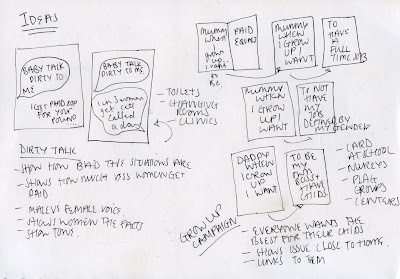 IDEAS
BABY TALK
DIRTY TO
ME.
I GET PAID 80P
FOR YOUR
POUND
BABY TALK
DIRTY TO ME.
1 in 3 women
get
called
a day
- TOILETS
- CHANGING
ROOMS
CLINICS
DIRTY TALK
- SHOW HOW BAD THE SITUATIONS ARE
- SHOWS HOW MUCH LESS WOMEN GET
PAID.
- MALE VS FEMALE VOICE.
- SHOWS WOMEN THE FACTS
- SHOW TONE.
Mummy
when
I
grow
up I
want
to be
PAID
EQUAL
MUMMY
WHEN
I GROW
UP I
WANT
TO
HAVE
A
FULL
TIME JOB
MUMMY
WHEN I
GROW UP I
WANT
TO NOT
HAVE
MY
JOB
DEFINED BY
MY GENDER
DADDY
WHEN
I GROW
UP
I WANT
TO BE
MY
OWN
BOSS +
HAVE
KIDS
AT SCHOOL
- NURSEYS
- PLAY
GROUPS
- CENTERS
GROW UP
CAMPAIGN
- EVERYONE WANTS THE
BEST FOR THEIR CHILDS
- SHOWS ISSUE CLOSE TO HOME.
- LINKS TO THEM